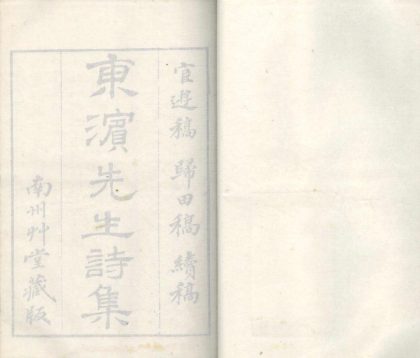 宦遊稿 歸田稿 續稿
東濵先生詩集
南州艸堂藏版